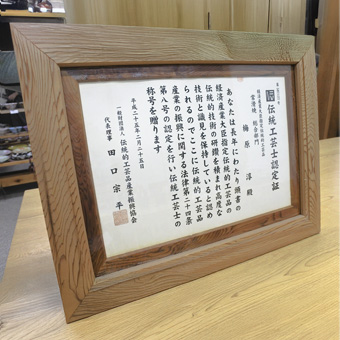 伝統工芸士認定証
経済産業大臣指定伝統的工芸品
常滑焼 総合部門
梅原 淳 殿
あなたは長年にわたり頭書の
経済産業大臣指定伝統的工芸品の
伝統的技術の研鑽を積まれ高度な
技術と識見を保持していると認め
られるのでここに伝統的工芸品
産業の振興に関する法律第二十四条
第八号の認定を行い伝統工芸士の
称号を贈ります
平成二十五年二月二十五日
一般財団法人 伝統的工芸品産業振興協会
代表理事 田口宗平